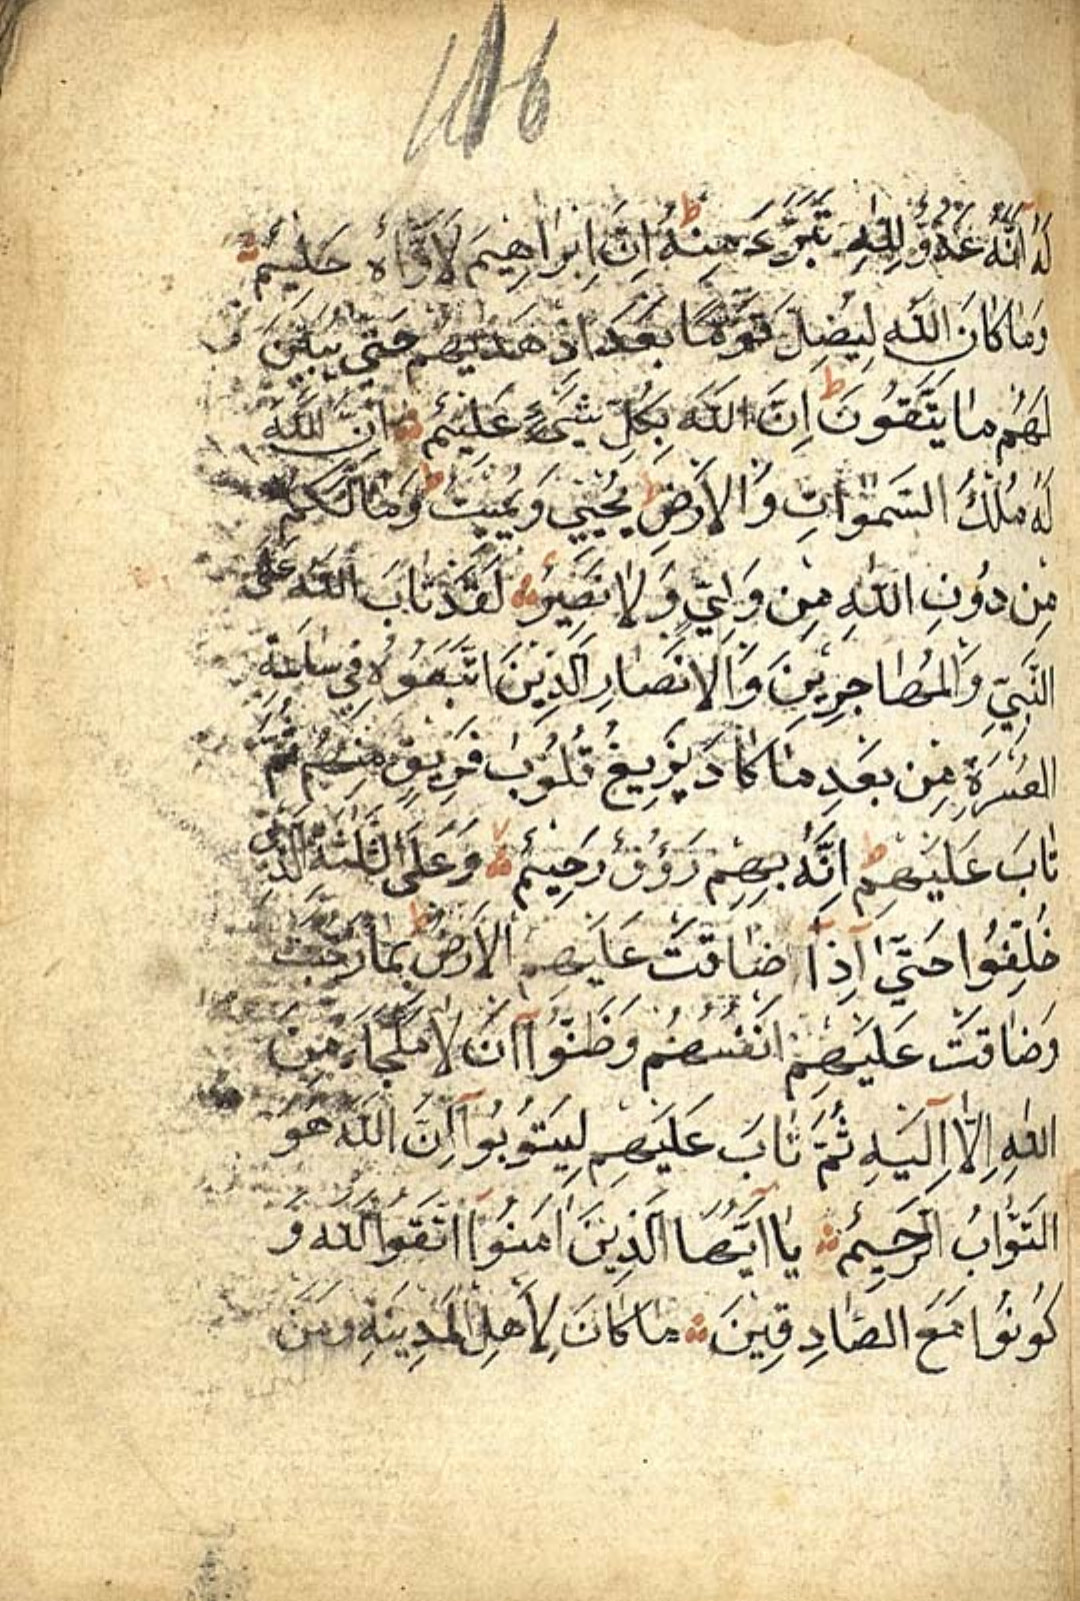 116
لَهُ اَنَّهُ عَدُوٌّ لِلّٰهِ تَبَرَّءَ مِنْهُ ط اِنَّ اِبْرَاهِيمَ لَاَوَّاهٌ حَلِيمٌ
وَمَا كَانَ اللّٰهُ لِيُضِلَّ قَوْمًا بَعْدَ اِذْ هَدٰيهُمْ حَتّٰى يُبَيِّنَ
لَهُمْ مَا يَتَّقُونَ ط اِنَّ اللّٰهَ بِكُلِّ شَىْءٍ عَلِيمٌ اِنَّ اللّٰهَ
لَهُ مُلْكُ السَّمٰوَاتِ وَالْاَرْضِ ط يُحْيِي وَيُمِيتُ ط وَمَا لَكُمْ
مِنْ دُونِ اللّٰهِ مِنْ وَلِيٍّ وَلَا نَصِيرٍ لَقَدْ تَابَ اللّٰهُ عَلَى
النَّبِيِّ وَالْمُهَاجِرِينَ وَالْاَنْصَارِ الَّذِينَ اتَّبَعُوهُ فِي سَاعَةِ
الْعُسْرَةِ مِنْ بَعْدِ مَا كَادَ يَزِيغُ قُلُوبُ فَرِيقٍ مِنْهُمْ ثُمَّ
تَابَ عَلَيْهِمْ ط اِنَّهُ بِهِمْ رَؤُفٌ رَحِيمٌ لا وَعَلَى الثَّلٰثَةِ الَّذِينَ
خُلِّفُوا حَتّٰى اِذَا ضَاقَتْ عَلَيْهِمُ الْاَرْضُ بِمَا رَحُبَتْ
وَضَاقَتْ عَلَيْهِمْ اَنْفُسُهُمْ وَظَنُّوا اَنْ لَا مَلْجَاءَ مِنَ
اللّٰهِ اِلَّا اِلَيْهِ ثُمَّ تَابَ عَلَيْهِمْ لِيَتُوبُوا اِنَّ اللّٰهَ هُوَ
التَّوَّابُ الرَّحِيمُ يَا اَيُّهَا الَّذِينَ اٰمَنُوا اتَّقُوا اللّٰهَ وَ
كُونُوا مَعَ الصَّادِقِينَ مَا كَانَ لِاَهْلِ الْمَدِينَةِ وَمَنْ